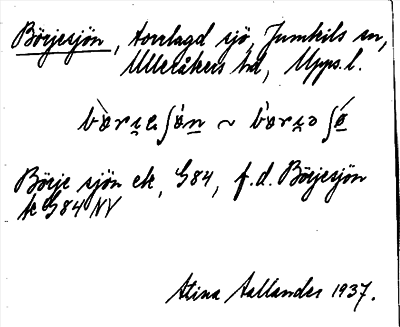 Börjesjön, torrlagd sjö, Jumkils sn,
Ulleråkers hd, Upps. l.
Börje sjön ek, G84, f.d. Börjesjön
k G84 NV
Stina Aallander 1937.